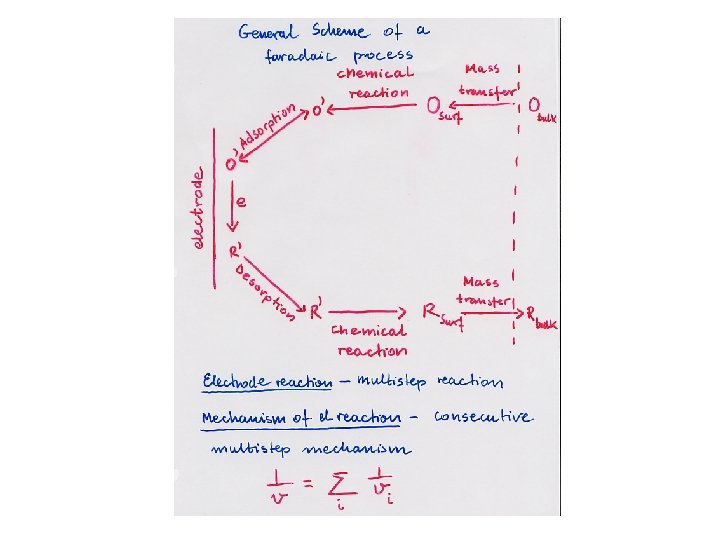 General Scheme of a
faradaic process
chemical
reaction
Mass
transfer
O'
O surf
O bulk
Adsorption
O'
electrode
e
R'
Desorption
R'
chemical
reaction
R surf
Mass
transfer
R bulk
Electrode reaction – multistep reaction
Mechanism of el reaction – consecutive
multistep mechanism
1/v = Σ_i 1/v_i